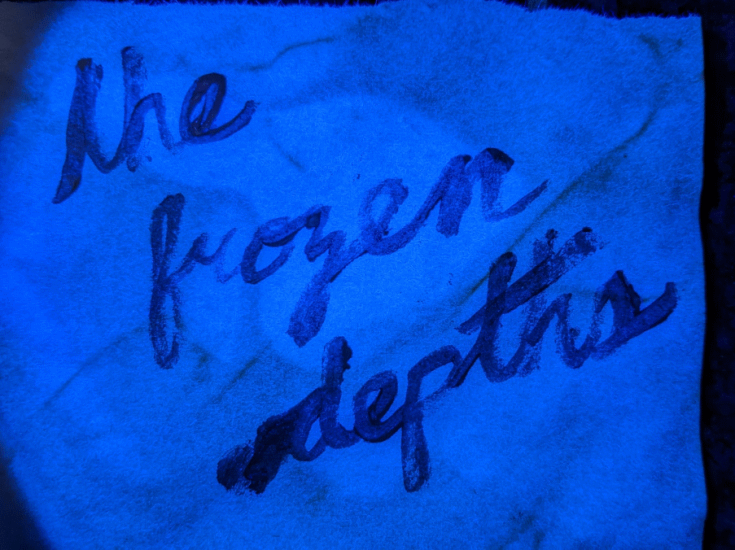 the
frozen
depths